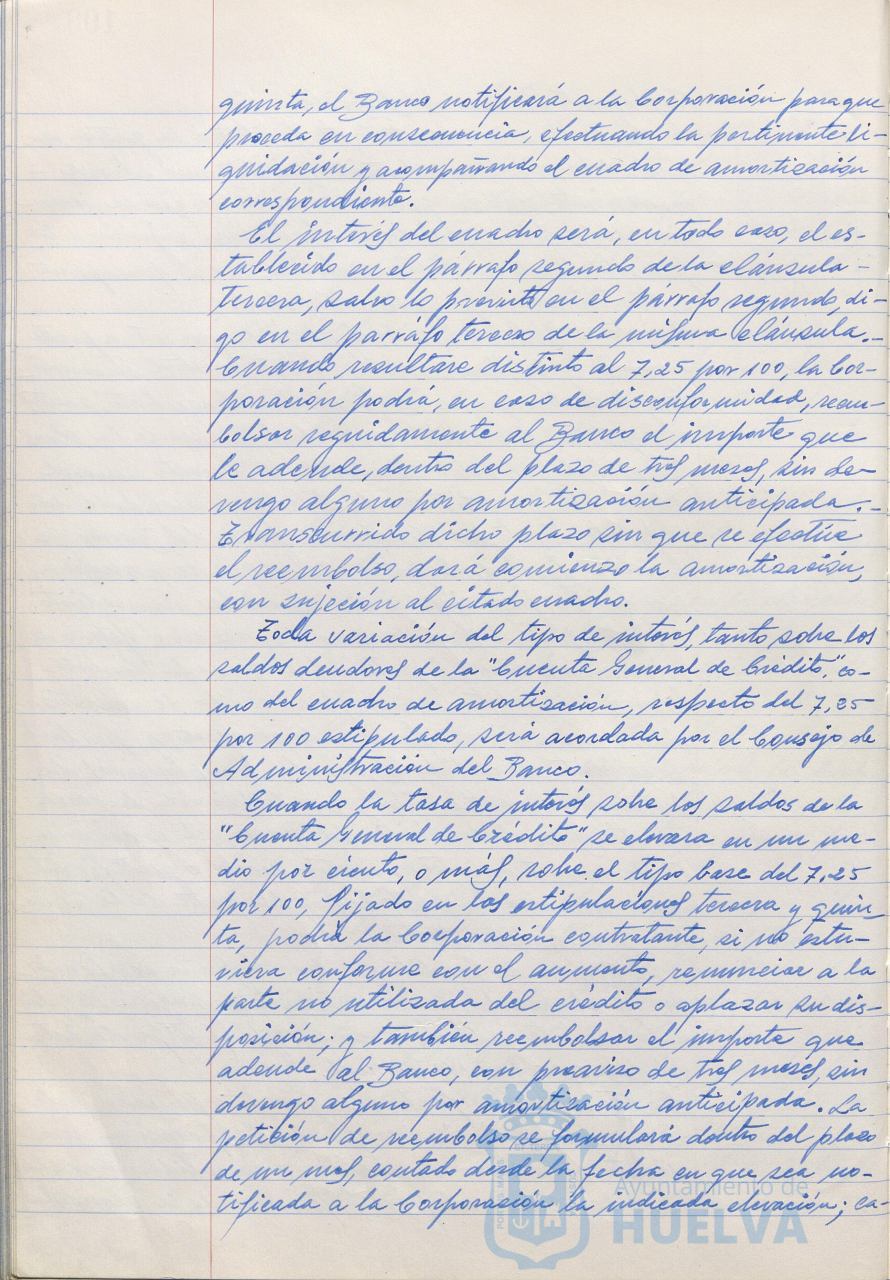 quinta, el Banco notificará a la Corporación para que
proceda en consecuencia, efectuando la pertinente li-
quidación y acompañando el cuadro de amortización
correspondiente.
El interés del cuadro será, en todo caso, el es-
tablecido en el párrafo segundo de la cláusula -
tercera, salvo lo previsto en el párrafo segundo, di-
go en el parráfo tercero de la misma cláusula.-
Cuando resultare distinto al 7,25 por 100, la Cor-
poración podrá, en caso de disconformidad, reem-
bolsar seguidamente al Banco el importe que
le adeude, dentro del plazo de tres meses, sin de-
vengo alguno por amortización anticipada.-
Transcurrido dicho plazo sin que se efectúe
el reembolso, dará comienzo la amortización,
con sujeción al citado cuadro.
Toda variación del tipo de interés, tanto sobre los
saldos deudores de la "Cuenta General de Crédito", co-
mo del cuadro de amortización, respecto del 7,25
por 100 estipulado, será acordada por el Consejo de
Administración del Banco.
Cuando la tasa de interés sobre los saldos de la
"Cuenta General de Crédito" se elevara en un me-
dio por ciento, o más, sobre el tipo base del 7,25
por 100, fijado en las estipulaciones tercera y quin-
ta, podrá la Corporación contratante, si no estu-
viera conforme con el aumento, renunciar a la
parte no utilizada del crédito o aplazar su dis-
posición; y también reembolsar el importe que
adeude al Banco, con preaviso de tres meses, sin
devengo alguno por amortización anticipada. La
petición de reembolso se formulará dentro del plazo
de un mes, contado desde la fecha en que sea no-
tificada a la Corporación la indicada elevación; ca-
Ayuntamiento de
HUELVA